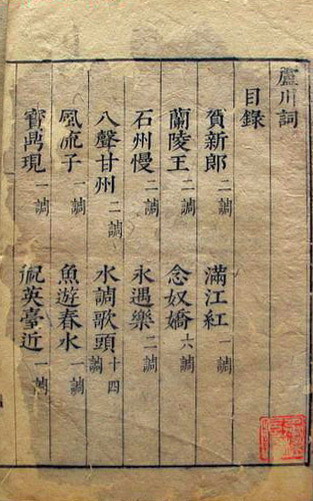 蘆川詞
目錄
賀新郎二調 滿江紅一調
蘭陵王二調 念奴嬌六調
石州慢二調 永遇樂二調
八聲甘州二調 水調歌頭十四調
風流子一調 魚遊春水一調
寶鼎現一調 祝英臺近一調